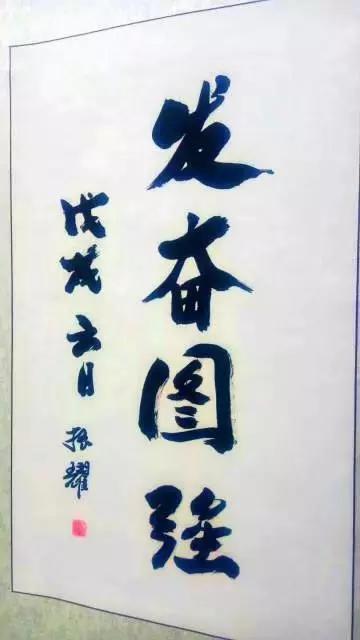 发奋图强
戊戌六月 振耀